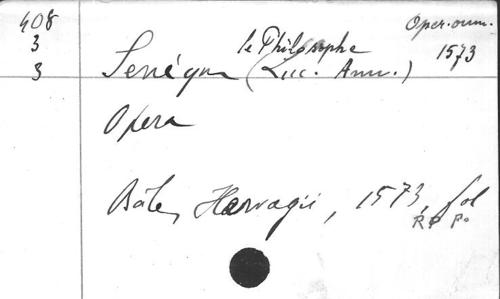 408
3
3
Oper. omn.
1573
le Philosophe
Senéque (Luc. Ann.)
Opera
Bâle, Hervagii, 1573, fol
R P P.